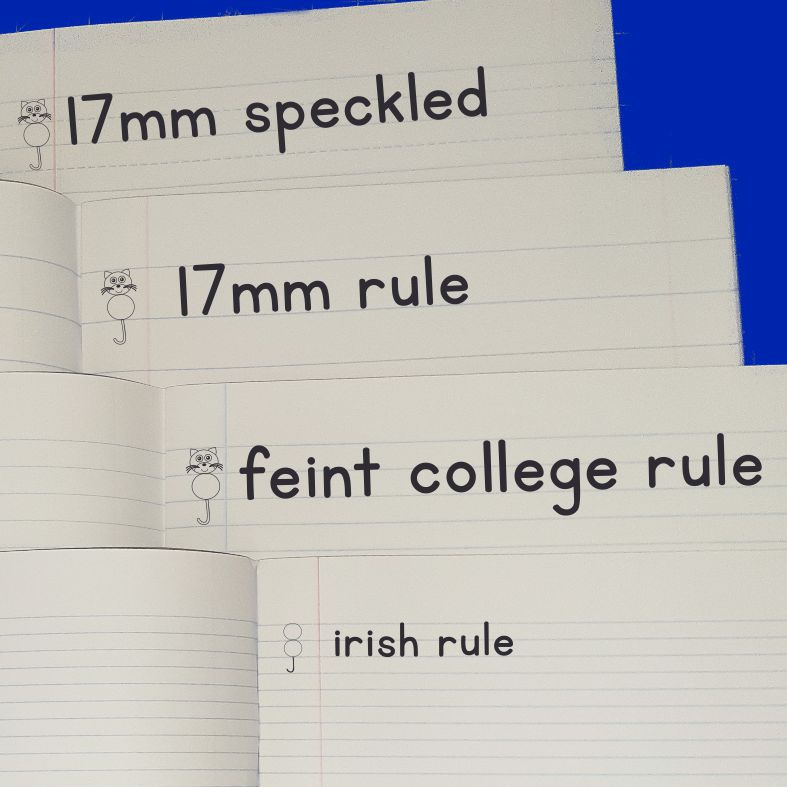 17mm speckled
17mm rule
feint college rule
irish rule